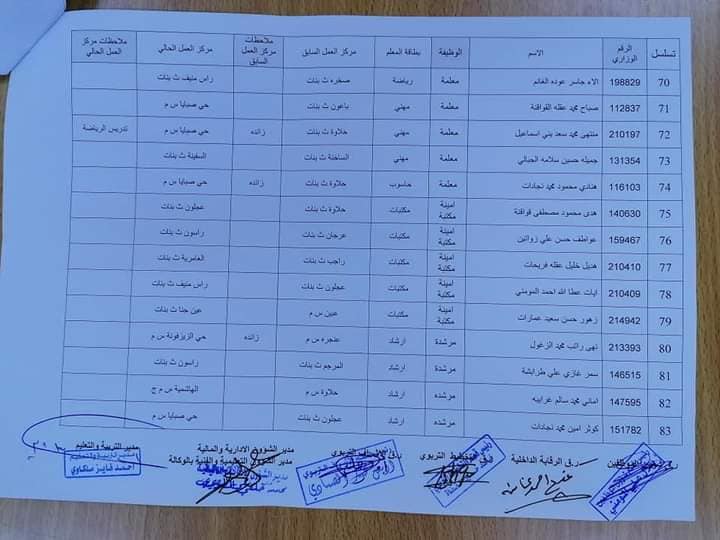 تسلسل الرقم الوزاري الاسم الوظيفة بطاقة المعلم مركز العمل السابق ملاحظات مركز العمل السابق مركز العمل الحالي ملاحظات مركز العمل الحالي
70 198829 الاء جاسر عوده الغانم معلمة رياضة صخره ث بنات راس منيف ث بنات
71 112837 صباح محمد عقله القواقنة معلمة مهني باعون ث بنات حي صبايا س م
72 210197 منتهى محمد سعد بني اسماعيل معلمة مهني حلاوة ث بنات زائده حي صبايا س م تدريس الرياضة
73 131354 جميله حسين سلامه الجبالي معلمة مهني الساخنة ث بنات السفينة ث بنات
74 116103 هنادي محمود محمد نجادات معلمة حاسوب حلاوة ث بنات زائده حي صبايا س م
75 140630 هدى محمود مصطفى قواقنة امينة مكتبة مكتبات حلاوة ث بنات عجلون ث بنات
76 159467 عواطف حسن علي زواتين امينة مكتبة مكتبات عرجان ث بنات راسون ث بنات
77 210410 هديل خليل عقله فريحات امينة مكتبة مكتبات راجب ث بنات العامرية ث بنات
78 210409 ايات عطا الله احمد المومني امينة مكتبة مكتبات عجلون ث بنات راس منيف ث بنات
79 214942 زهور حسن سعيد عمارات امينة مكتبة مكتبات عبين س م عين جنا ث بنات
80 213393 نهى راتب محمد الزغول مرشدة ارشاد عنجره س م زائده حي الزيزفونة س م
81 146515 سمر غازي علي طرابشة مرشدة ارشاد المرجم ث بنات راسون ث بنات
82 147595 اماني محمد سالم غرايبه مرشدة ارشاد حلاوة س م الهاشمية س م ج
83 151782 كوثر امين محمد نجادات مرشدة ارشاد عجلون ث بنات حي صبايا س م
ر.ق الرقابة الداخلية التربوي مدير الشؤون الادارية والمالية مدير التربية والتعليم
مدير الشؤون التعليمية والفنية بالوكالة
احمد فايز